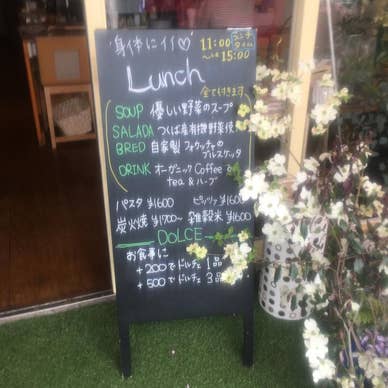 身体にイイ♡ 11:00 ランチタイム
〜15:00
Lunch
全て付きます
SOUP 優しい野菜のスープ
SALADA つくば産有機野菜使
BRED 自家製フォカッチャの
ブルスケッタ
DRINK オーガニックCoffee
tea & ハーブ
パスタ ¥1600 ピッツァ ¥1600
炭火焼 ¥1700〜 雑穀米 ¥1600
DOLCE
お食事に
+200でドルチェ 1品
+500でドルチェ 3品